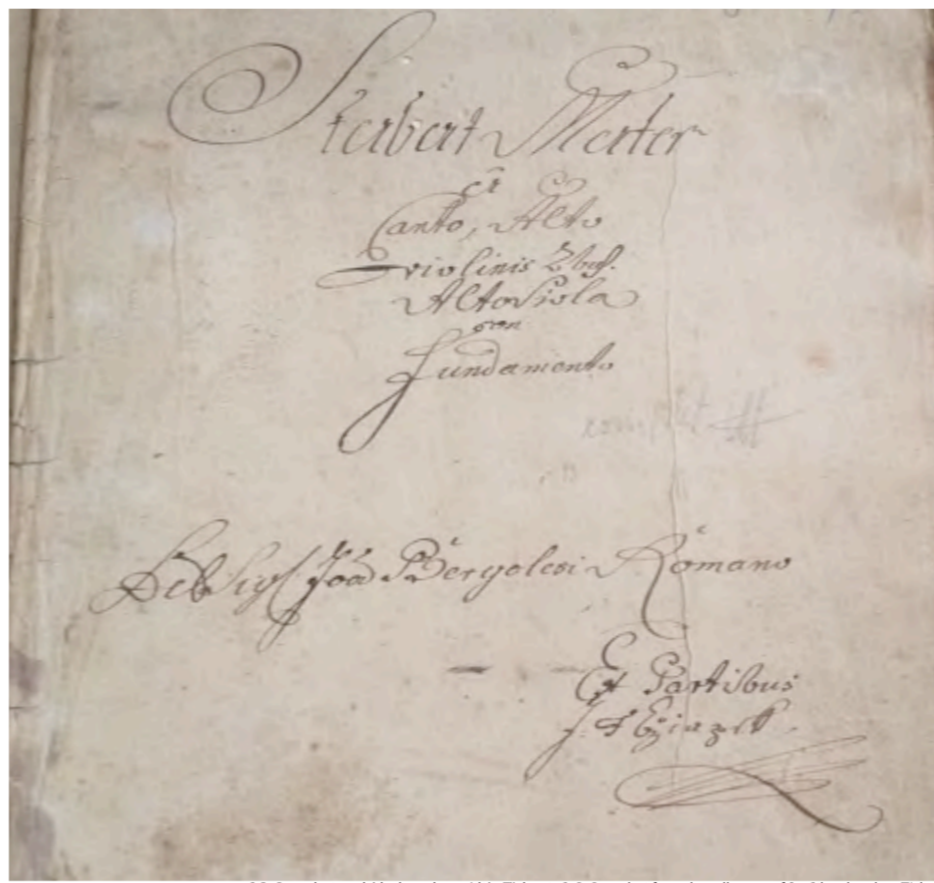 Stabat Mater
à
Canto, Alto
Violinis 2bus.
Alto Viola
con
Fundamento
Del Sigl Joa Bergolesi Romano
Ex Partibus